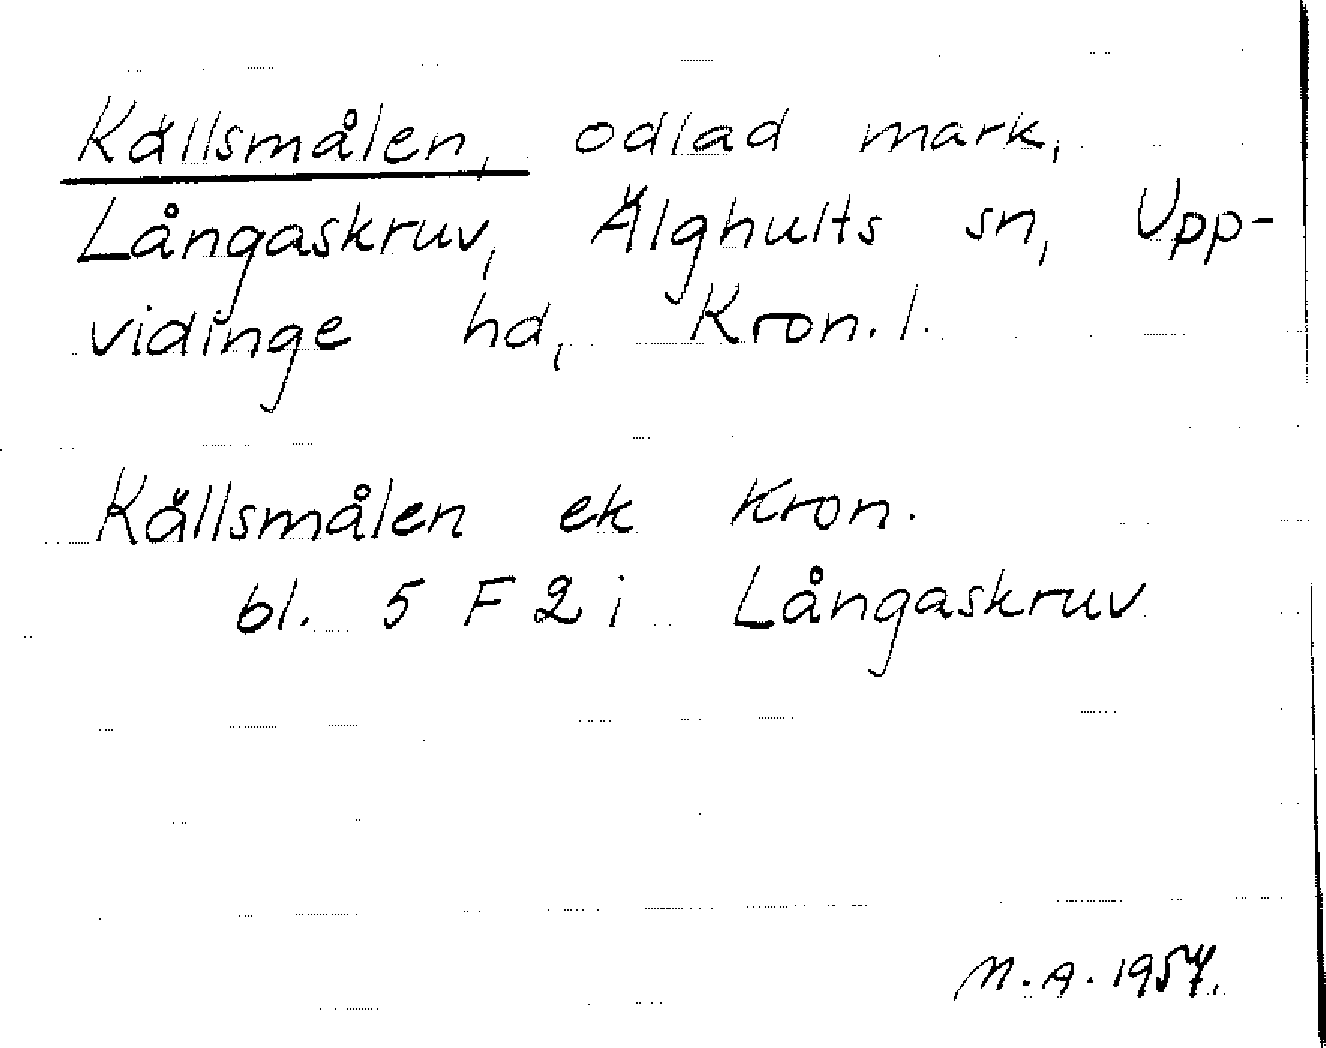 Källsmålen, odlad mark,
Långaskruv, Älghults sn, Upp-
vidinge hd, Kron.l.
Källsmålen ek Kron.
bl. 5 F 2 i Långaskruv
M.A. 1957.